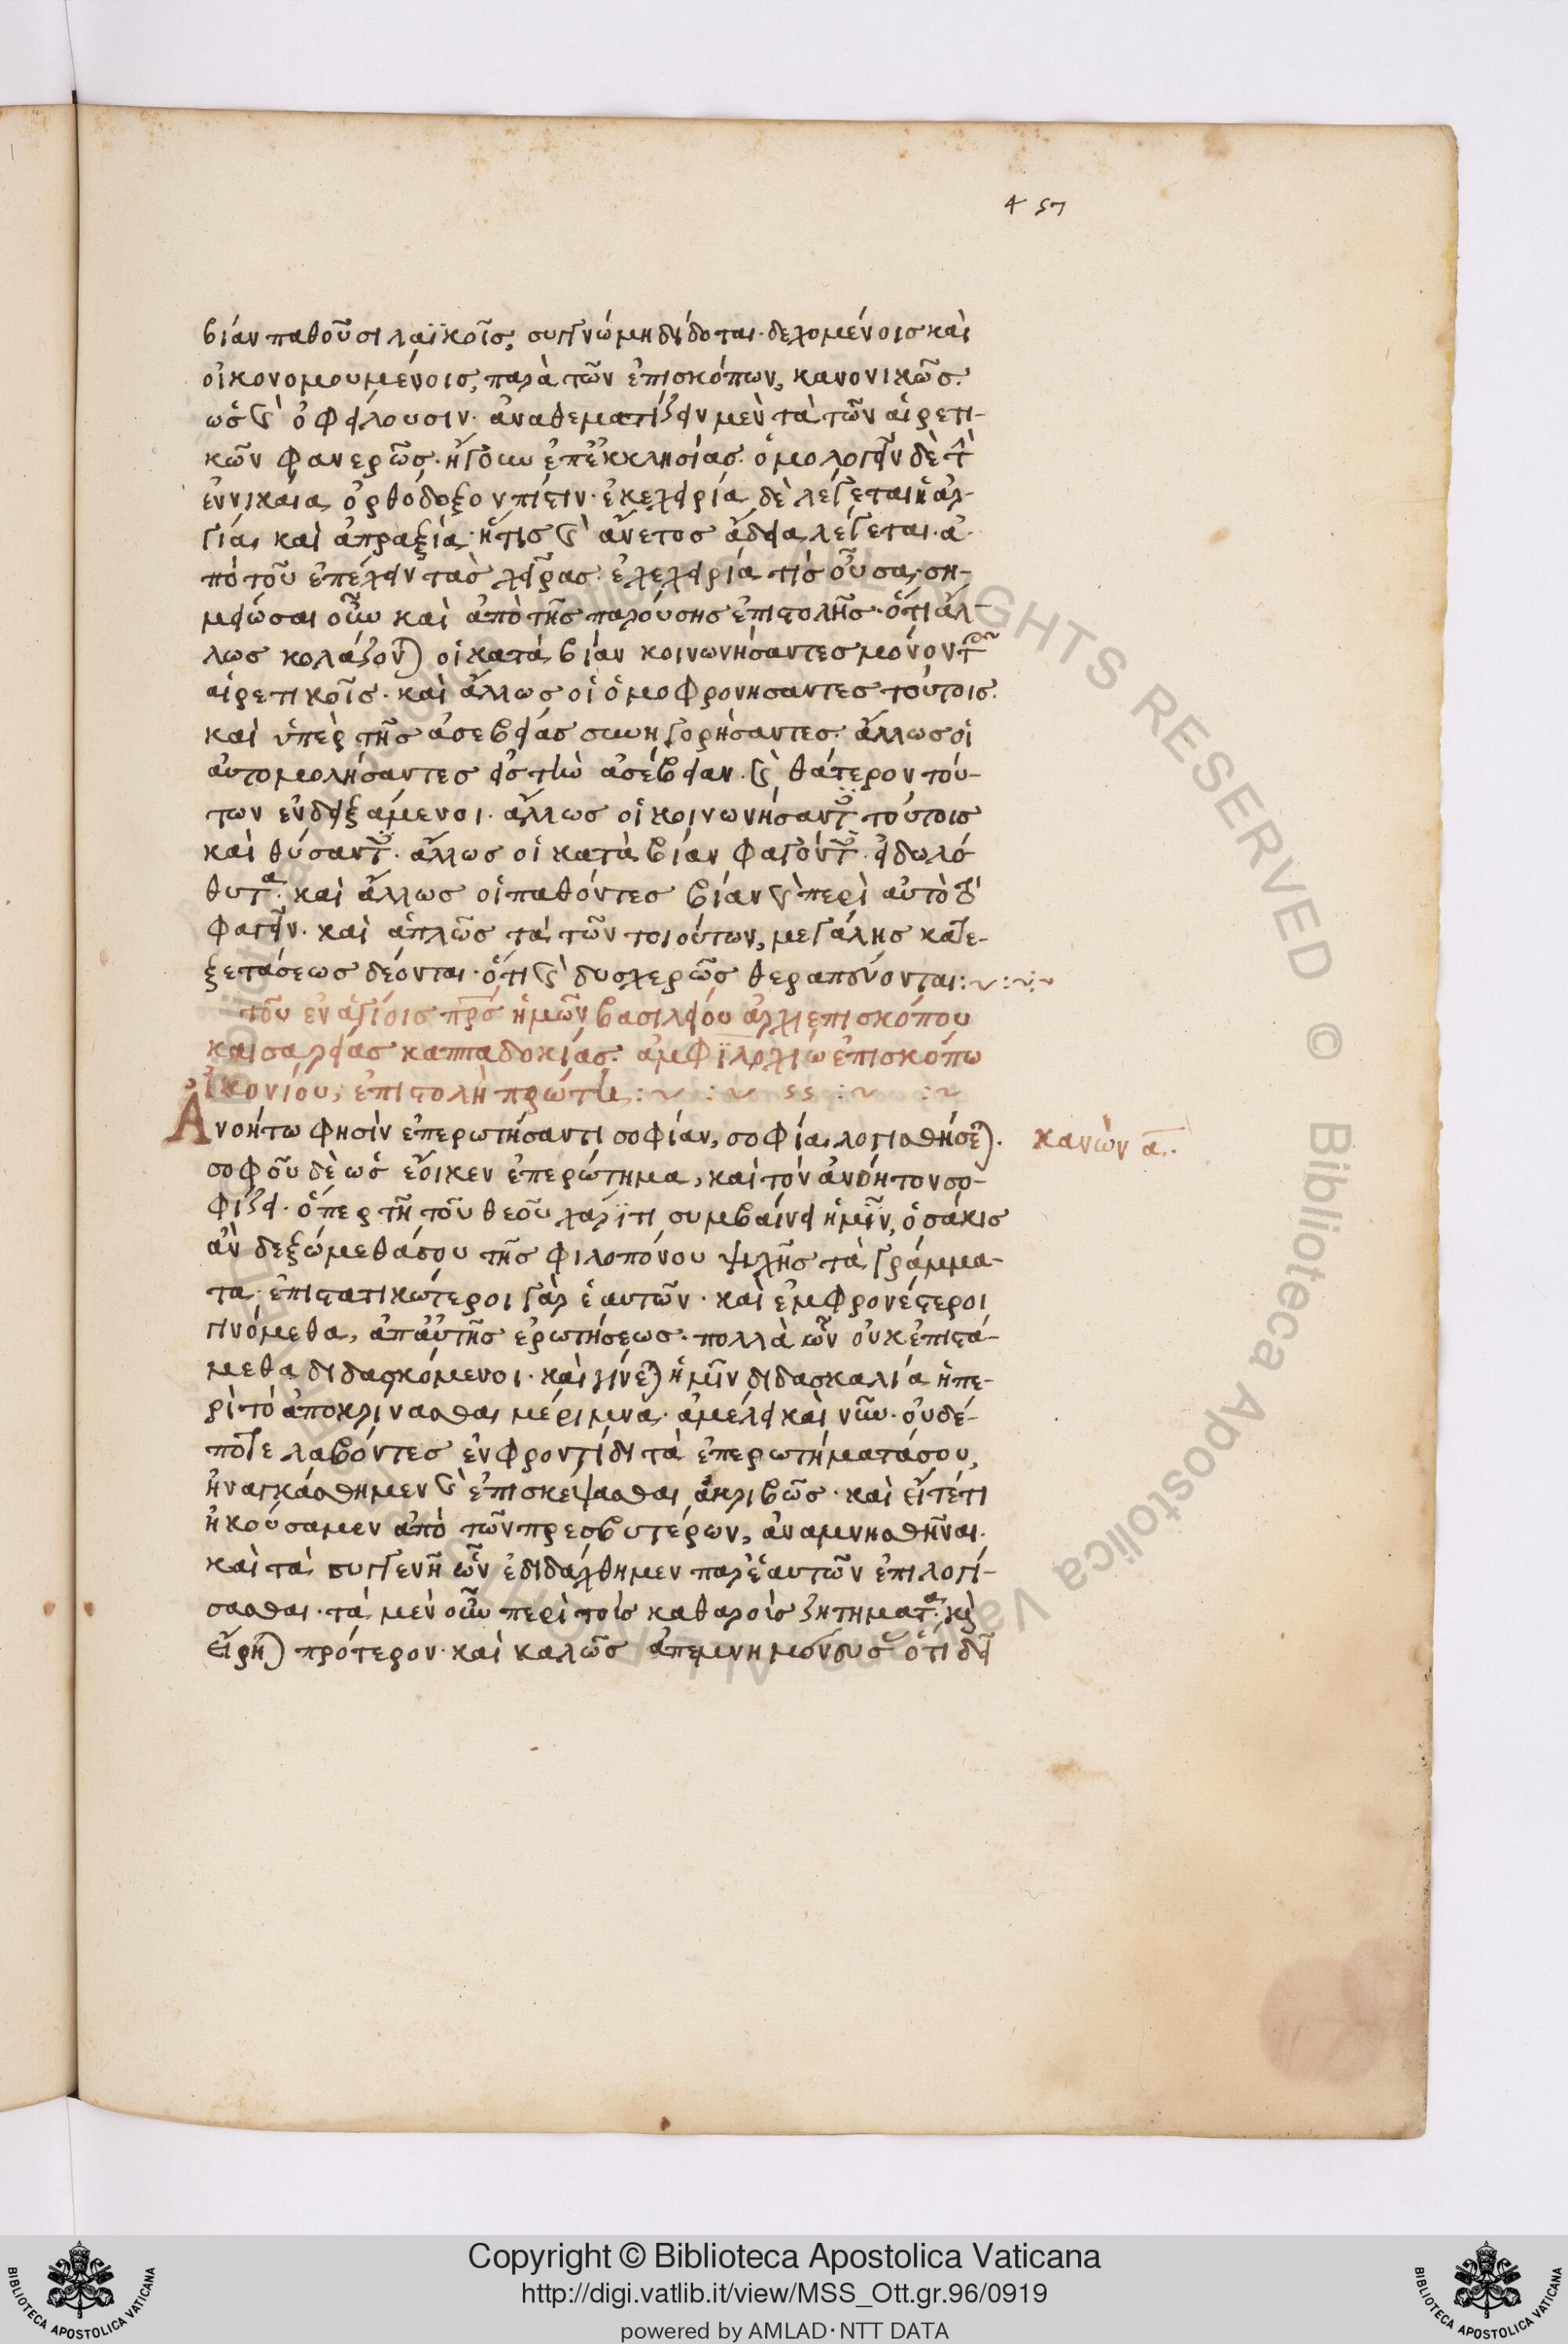 457
βίαν παθοῦσι λαϊκοῖς, συγγνώμη δίδοται· δεχομένοις καὶ
οἰκονομουμένοις, παρὰ τῶν ἐπισκόπων, κανονικῶς.
ὡς καὶ ὀφείλουσιν· ἀναθεματίζειν μὲν τὰ τῶν αἱρετι-
κῶν φανερῶς· ἤγουν ἐπ' ἐκκλησίας· ὁμολογεῖν δὲ τὴν
ἐν νικαία ὀρθόδοξον πίστιν· ἐκεχειρία δὲ λέγεται ἡ ἀρ-
γία, καὶ ἀπραξία· ἥτις καὶ ἄνετος ἄδεια λέγεται· ἀ-
πὸ τοῦ ἐπέχειν τὰς χεῖρας· ἐχεχειρία τὶς οὖσα· ση-
μείωσαι οὖν καὶ ἀπὸ τῆς παρούσης ἐπιστολῆς· ὅτι ἄλ-
λως κολάζονται οἱ κατὰ βίαν κοινωνήσαντες μόνον τοῖς
αἱρετικοῖς· καὶ ἄλλως οἱ ὁμοφρονήσαντες τούτοις.
καὶ ὑπὲρ τῆς ἀσεβείας συνηγορήσαντες· ἄλλως οἱ
αὐτομολήσαντες εἰς τὴν ἀσέβειαν· καὶ θάτερον τού-
των ἐνδειξάμενοι· ἄλλως οἱ κοινωνήσαντες τούτοις
καὶ θύσαντες· ἄλλως οἱ κατὰ βίαν φαγόντες εἰδωλό
θυτα· καὶ ἄλλως οἱ παθόντες βίαν καὶ περὶ αὐτὸ τὸ
φαγεῖν· καὶ ἁπλῶς τὰ τῶν τοιούτων, μεγάλης κατε-
ξετάσεως δέονται· ὅτι καὶ δυσχερῶς θεραπεύονται:~:~
τοῦ ἐν ἁγίοις πρς ἡμῶν βασιλείου ἀρχιεπισκόπου
καισαρείας καππαδοκίας· ἀμφιλοχίω ἐπισκόπω
ἰκονίου, ἐπιστολὴ πρώτη:~ :~ :~ :~
Ἀνοήτω φησὶν ἐπερωτήσαντι σοφίαν, σοφία λογισθήσεται.
κανὼν α.
σοφοῦ δὲ ὡς ἔοικεν ἐπερώτημα, καὶ τὸν ἀνόητον σο-
φίζει· ὅπερ τῆ τοῦ θεοῦ χάριτι συμβαίνει ἡμῖν, ὁσάκις
ἂν δεξώμεθά σου τῆς φιλοπόνου ψυχῆς τὰ γράμμα-
τα· ἐπιστατικώτεροι γὰρ ἑαυτῶν· καὶ ἐμφρονέστεροι
γινόμεθα, ἀπ' αὐτῆς ἐρωτήσεως· πολλὰ ὧν οὐκ ἐπιστά-
μεθα διδασκόμενοι· καὶ γίνεται ἡμῖν διδασκαλία ἡ πε-
ρὶ τὸ ἀποκρίνασθαι μέριμνα· ἀμέλει καὶ νῦν· οὐδέ-
ποτε λαβόντες ἐν φροντίδι τὰ ἐπερωτήματά σου,
ἠναγκάσθημεν καὶ ἐπισκέψασθαι ἀκριβῶς· καὶ εἴ τέ τι
ἠκούσαμεν ἀπὸ τῶν πρεσβυτέρων, ἀναμνησθῆναι.
καὶ τὰ συγγενῆ ὧν ἐδιδάχθημεν παρ' ἑαυτῶν ἐπιλογί-
σασθαι· τὰ μὲν οὖν περὶ τοὶς καθαροὶς ζητήματα· καὶ
εἴρηται πρότερον· καὶ καλῶς ἀπεμνημόνευσας ὅτι δεῖ
Copyright © Biblioteca Apostolica Vaticana
http://digi.vatlib.it/view/MSS_Ott.gr.96/0919
powered by AMLAD·NTT DATA